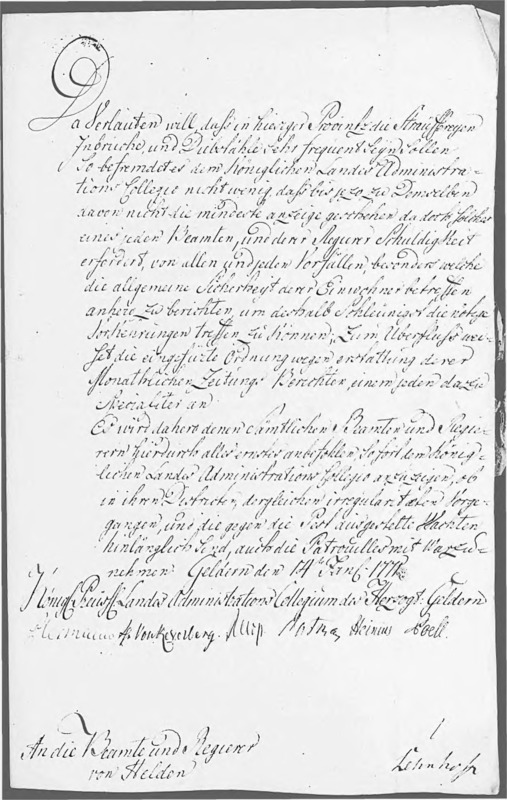 Da Verlauten will, dass in hiesiger Provintz die Strassenreyen
Inbrüche, und Diebstähle sehr frequent seyn sollen
So befremdet es dem Königlichen Landes Administra-
tions Collegio nicht wenig, dass bis jezo zu Demselben
davon nicht die mindeste anzeige geschehen da doch solches
eines jeden Beamten, und derer Regierer Schuldigkeit
erfordert, von allen und jeden Vorfällen, besonders welche
die allgemeine Sicherheyt derer Einwohner betreffen
anhero zu berichten, um deshalb schleunigst die nötige
Vorkehrungen treffen zu können; Zum Überfluss wei-
set die eingefürte Ordnung wegen erstattung derer
Monathlichen Zeitungs Berichten, einem jeden dazu
specialiter an.
Es wird dahero denen sämtlichen Beamten und Regie-
rern hierdurch alles ernstes anbefohlen, sofort dem König-
lichen Landes Administrations Collegio anzuzeigen, ob
in ihren Districten, dergleichen irregularitaeten Vorge-
gangen, und die gegen die Pest ausgestelte Wachten
hinlänglich seind, auch die Patrouilles mit War zu-
nehmen. Geldern den 14
Königl. Preuss. Landes Administrations Collegium des Herzogt. Geldern
von Heinius Coell.
An die Beamte und Regierer
von Helden